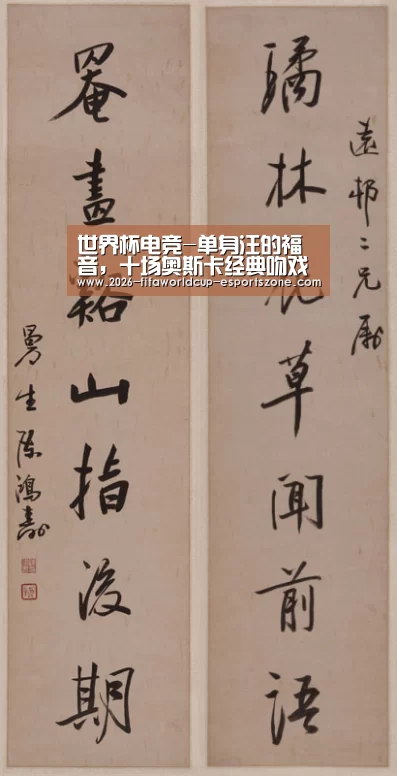 遠邨二兄属
璚林花草聞前語
罨畫谿山指後期
曼生陳鴻壽
世界杯电竞-单身汪的福
音，十场奥斯卡经典吻戏
www.2026-fifaworldcup-esportszone.com